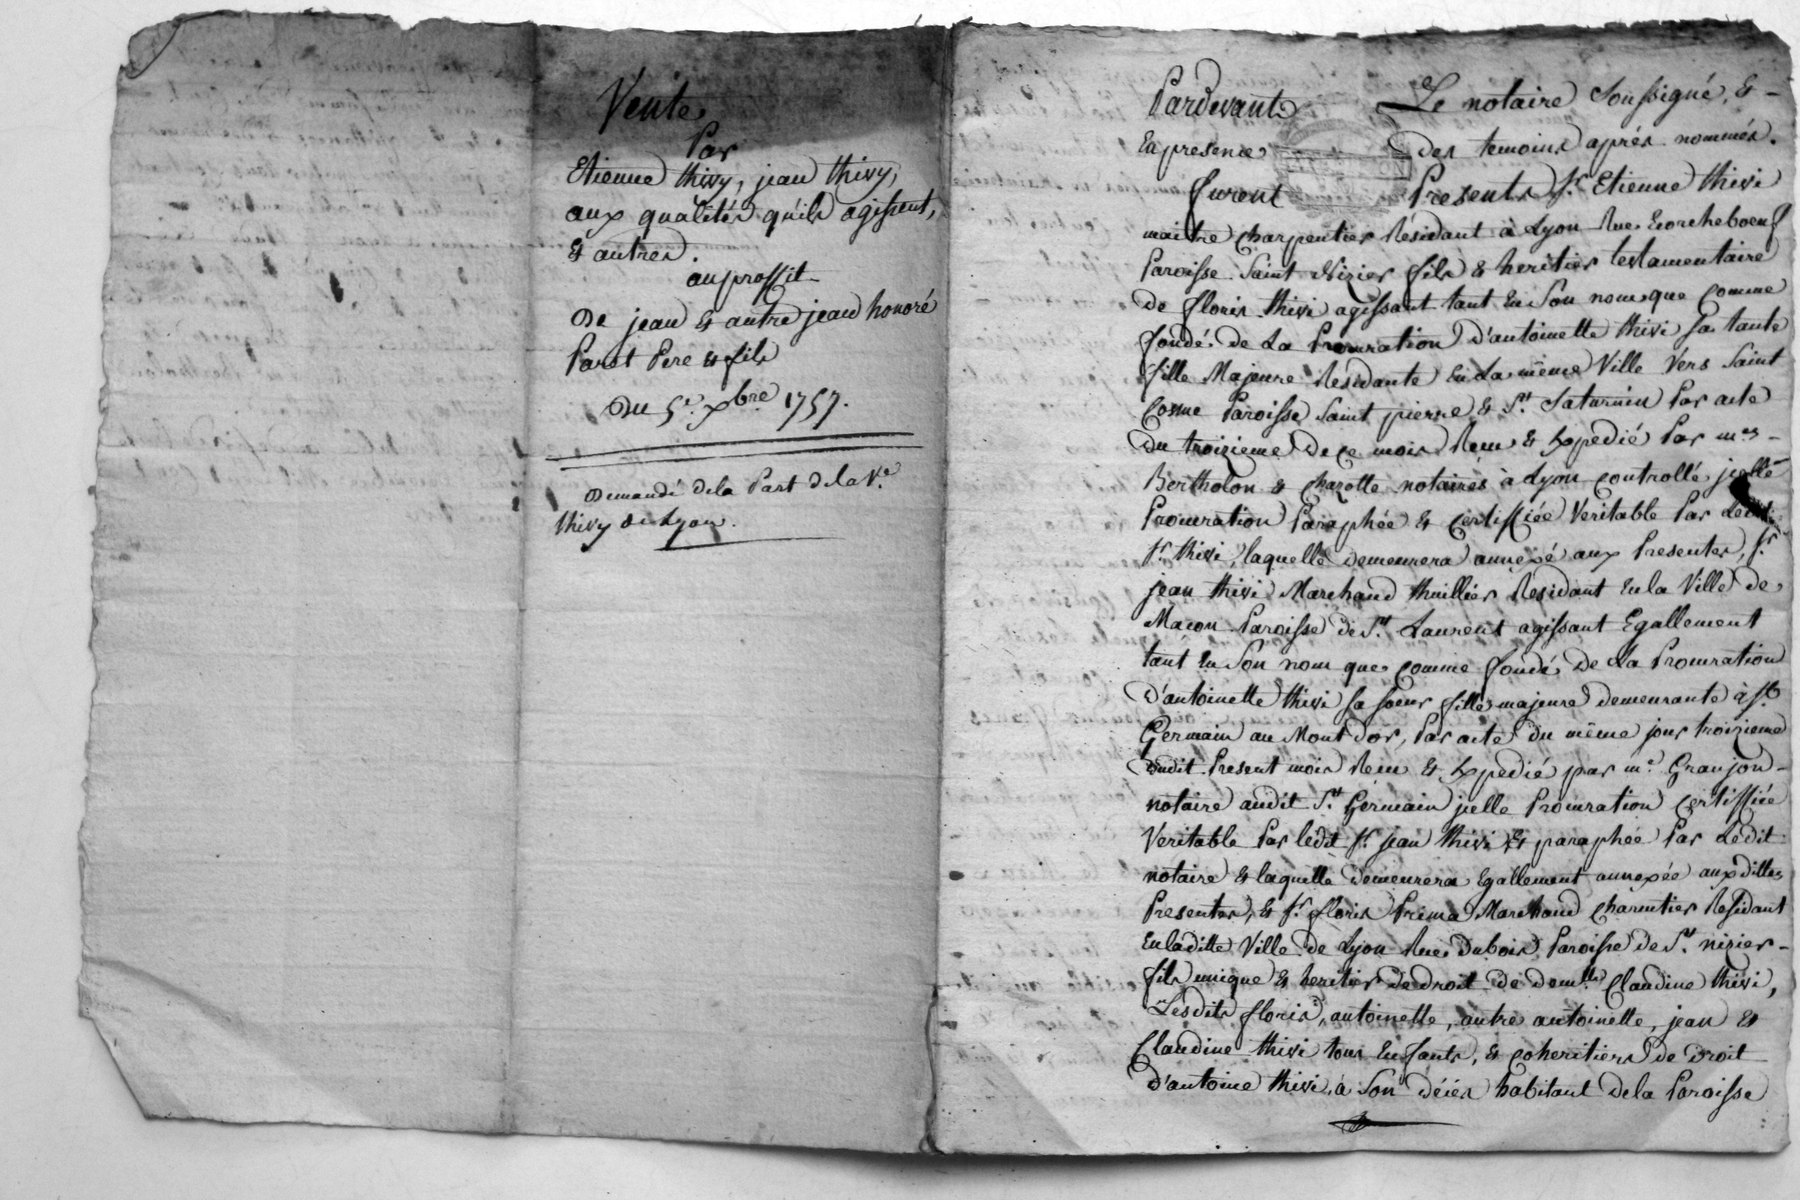 Vente
Par
Etienne thivy, jean thivy,
aux qualités qu'ils agissent,
& autres.
au proffit
De jean & autre jean honoré
Parot Pere & fils
Du 5e. xbre 1757.
Demandé dela Part dela Ve.
thivy de Lyon.
Pardevant Le notaire Soussigné, &
En presence des temoins aprés nommés.
furent Presents Sr. Etienne thivi
maitre charpentier Résidant à Lyon Rue Ecorcheboeuf
Paroisse Saint Nizier fils & heritier testamentaire
De floris thivi agissant tant En Son nom que comme
fondé de La Procuration D'antoinette thivi sa tante
fille Majeure Residante En La même Ville Vers Saint
Cosme Paroisse Saint pierre & St. Saturnin Par acte
Du troizieme De ce mois Reçu & Expedié Par mes
Bertholon & Charotte notaires à Lyon controllé, jcelle
Procuration Paraphée & certiffiée Veritable Par Ledit
Sr. thivi, laquelle demeurera annexé aux Presentes, Sr.
jean thivi Marchand thuillier Résidant En la Ville de
Macon Paroisse de St. Laurent agissant Egallement
tant En Son nom que comme fondé De La Procuration
D'antoinette thivi sa soeur fille majeure demeurante à St.
Germain au Mont d'or, Par acte du même jour troizieme
dudit Present mois Reçu & Expedié par me. Granjon
notaire audit St. Germain jcelle Procuration certiffiée
Veritable Par ledit Sr. jean thivi & paraphée Par Ledit
notaire & laquelle demeurera Egallement annexée auxdittes
Presentes, & Sr. floris Prima Marchand charcutier Residant
En laditte Ville de Lyon Rue Dubois Paroisse de St. nizier
fils unique & heritier de droit de demlle. Claudine thivi,
Lesdits floris, antoinette, autre antoinette, jean &
Claudine thivi tous Enfants, & coheritiers de Droit
D'antoine thivi, à Son décés habitant de la Paroisse